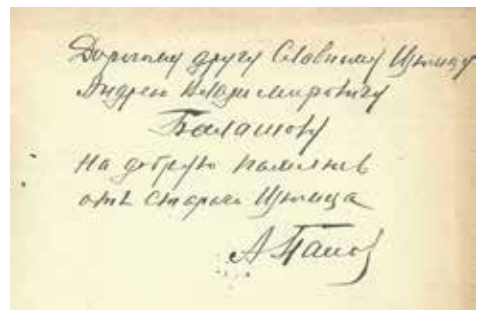 Дорогому другу Славному
Андрею Владимировичу
Балашову
на добрую память
отъ Стараго
А Панов